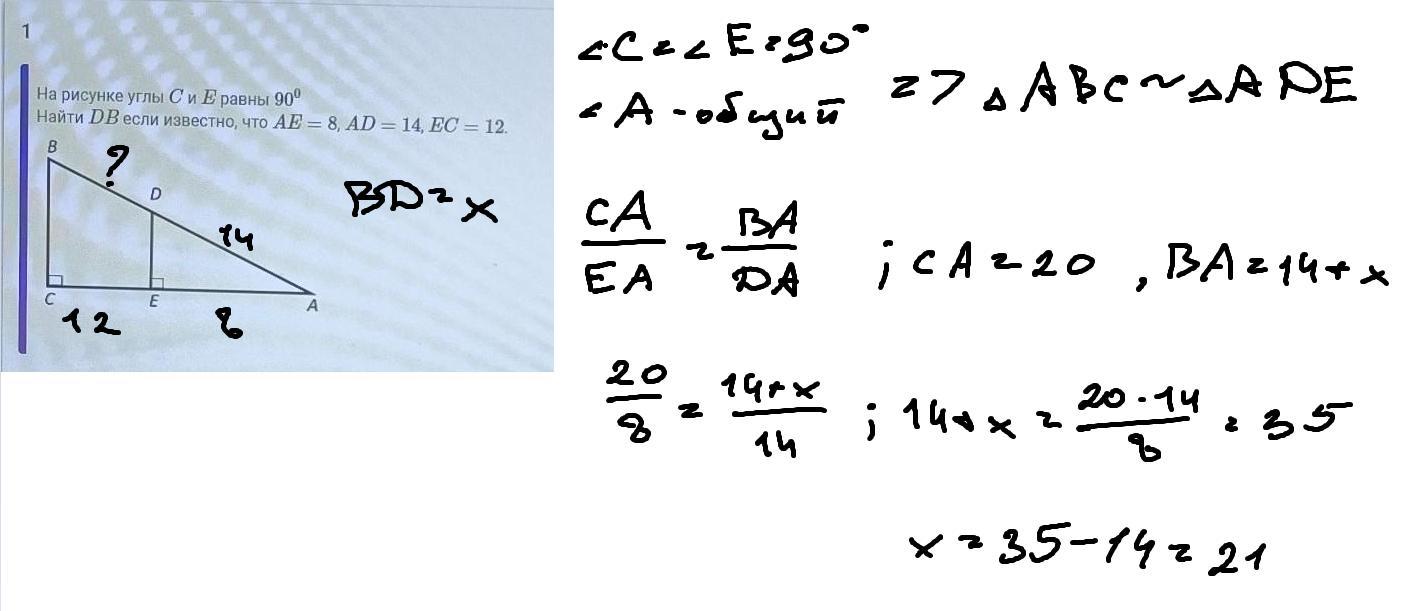 1
На рисунке углы C и E равны 90⁰
Найти DB если известно, что AE = 8, AD = 14, EC = 12.
B
?
D
14
C
E
A
12
8
BD = x
∠C = ∠E = 90°
∠A - общий
=> △ABC ~ △ADE
CA/EA = BA/DA ; CA = 20 , BA = 14 + x
20/8 = 14+x/14 ; 14+x = 20·14/8 = 35
x = 35 - 14 = 21